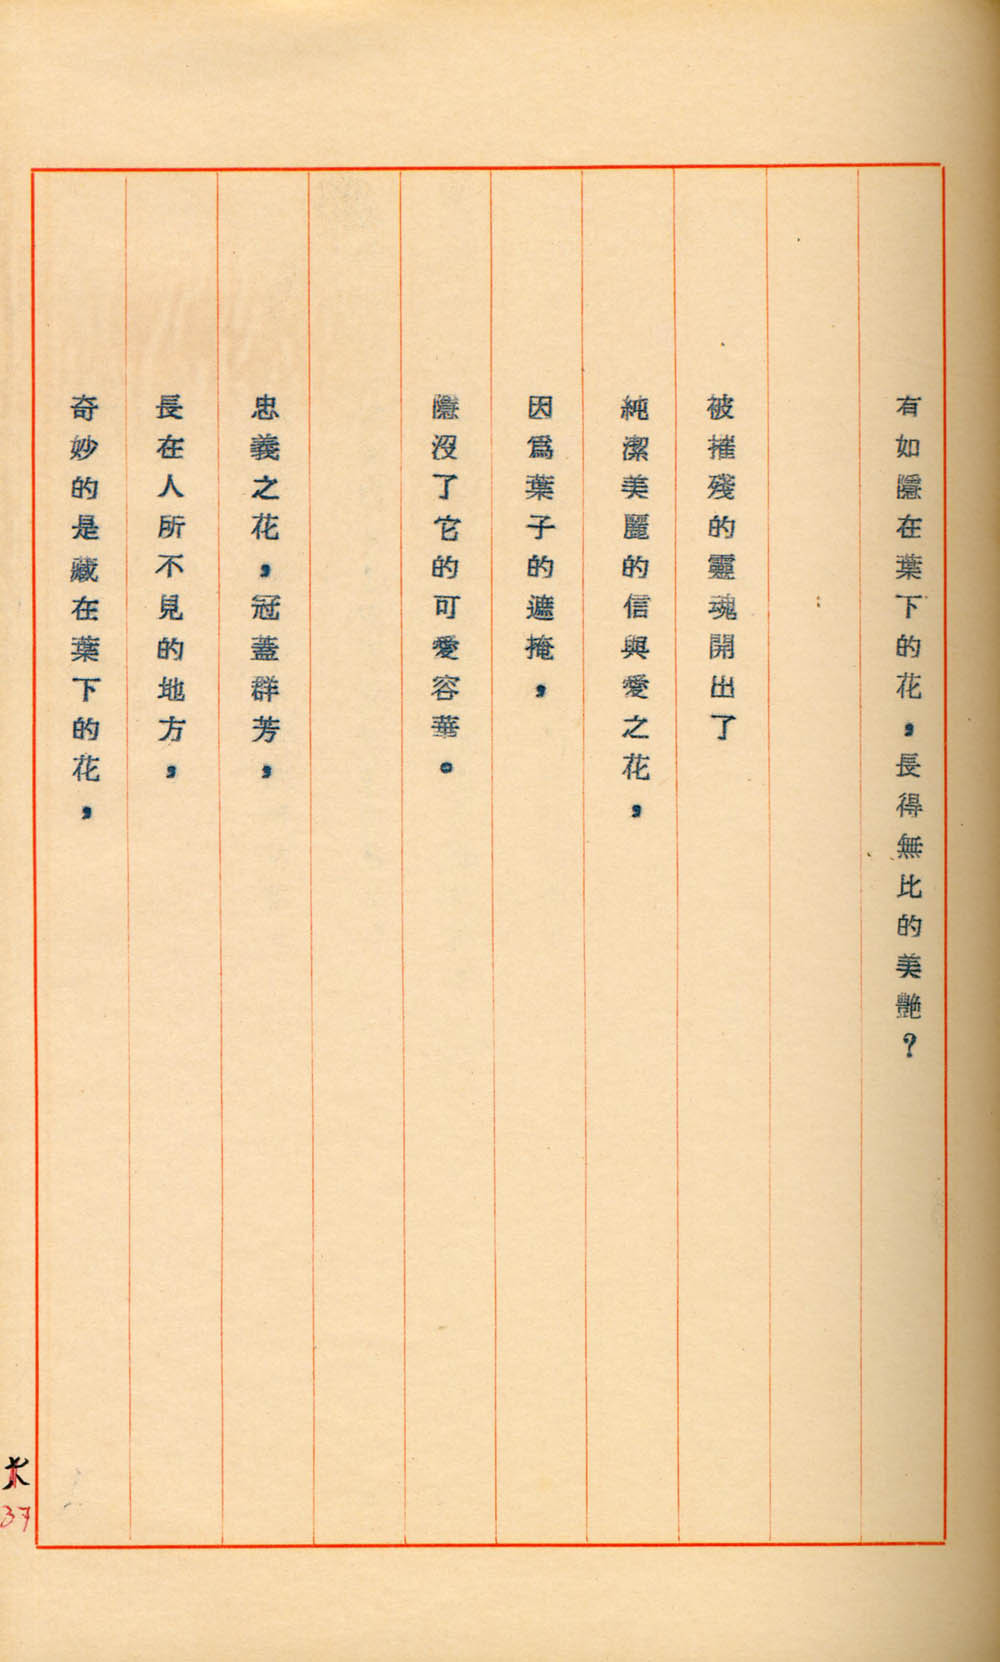 有如隱在葉下的花，長得無比的美艷？
被摧殘的靈魂開出了
純潔美麗的信與愛之花，
因爲葉子的遮掩，
隱沒了它的可愛容華。
忠義之花，冠蓋群芳，
長在人所不見的地方，
奇妙的是藏在葉下的花，
37